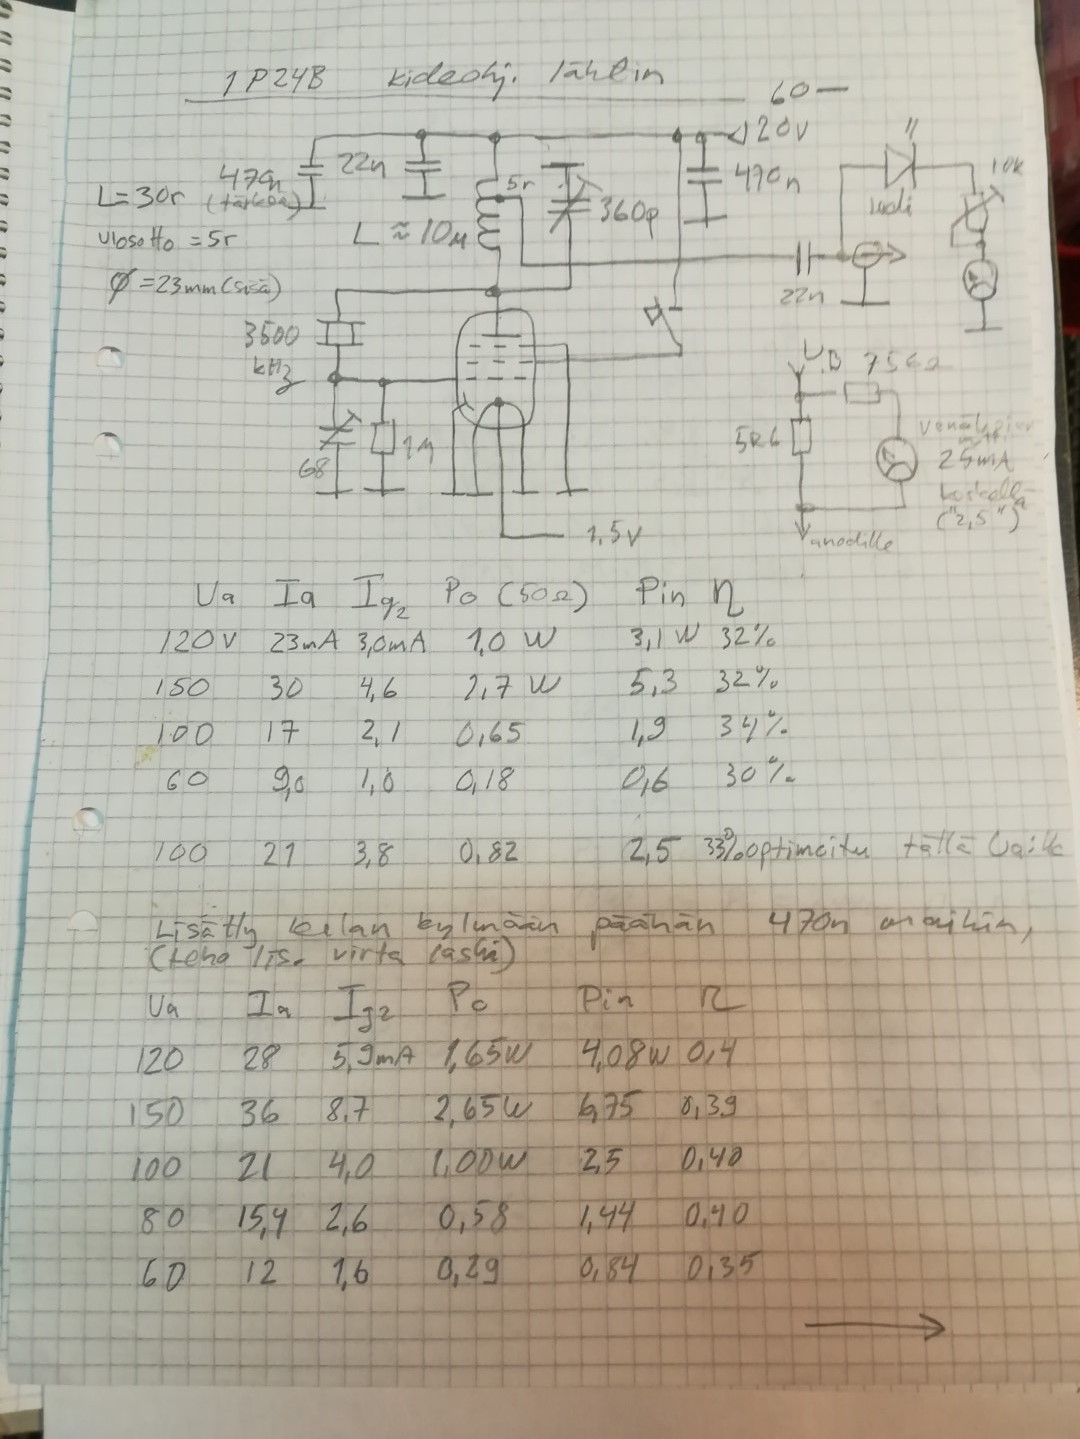 1P24B kideohj. lähetin
60—
120V
470n 22n
(tärkeä)
L=30r
ulosotto = 5r
Ø=23mm (sisä)
5r
L ≈ 10μ
360p
470n
22n
10k
3500
kHz
68
1M
1,5V
UB 756Ω
5R6
25mA
("2,5")
anodille
Ua Ia Ig2 Po (50Ω) Pin η
120V 23mA 3,0mA 1,0 W 3,1 W 32%
150 30 4,6 1,7 W 5,3 32%
100 17 2,1 0,65 1,9 34%
60 9,0 1,0 0,18 0,6 30%
100 21 3,8 0,82 2,5 33% optimoitu tällä
Lisätty kelan kylmään päähän 470n
(teho lis. virta laski)
Ua Ia Ig2 Po Pin η
120 28 5,9mA 1,65W 4,08W 0,4
150 36 8,7 2,65W 6,75 0,39
100 21 4,0 1,00W 2,5 0,40
80 15,4 2,6 0,58 1,44 0,40
60 12 1,6 0,29 0,84 0,35